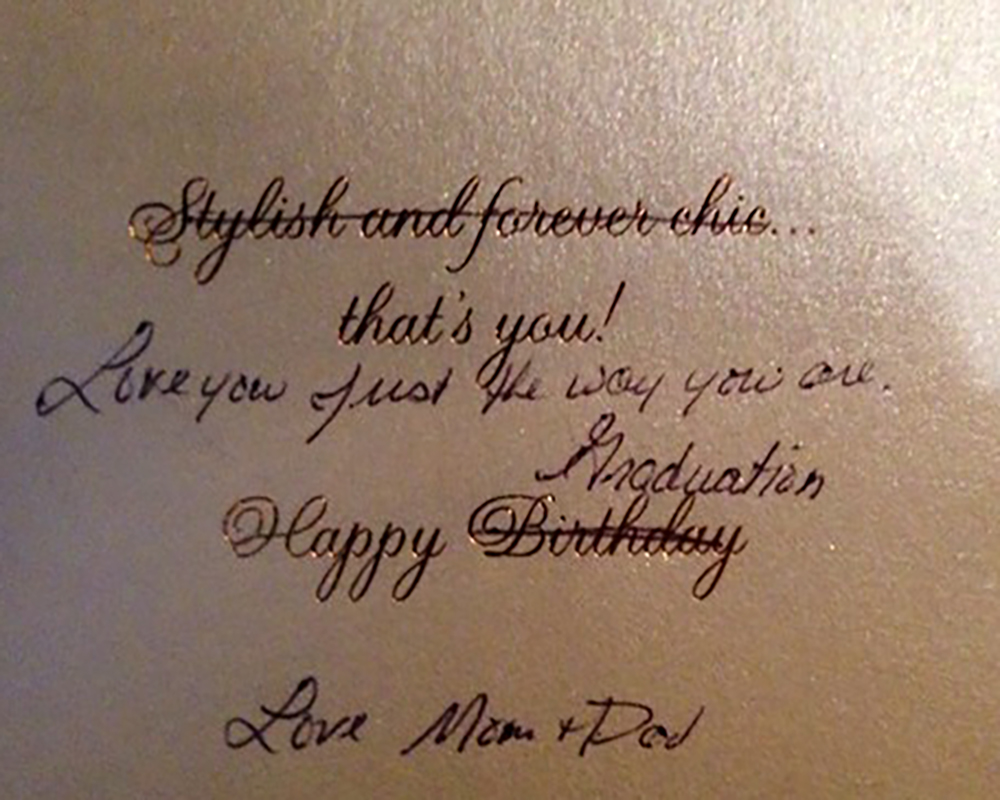 Stylish and forever chic...
that's you!
Love you Just the way you are.
Graduation
Happy Birthday
Love Mom + Dad